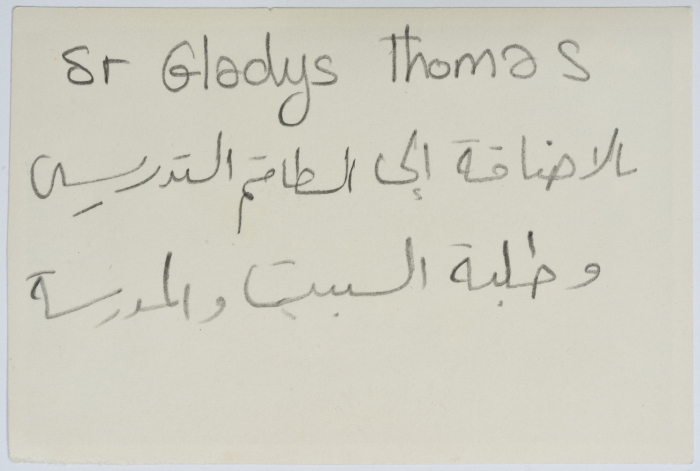 Sr Gladys Thomas
بالاضافة إلى الطاقم التدريسي
و طلبة السبيت والمدرسة